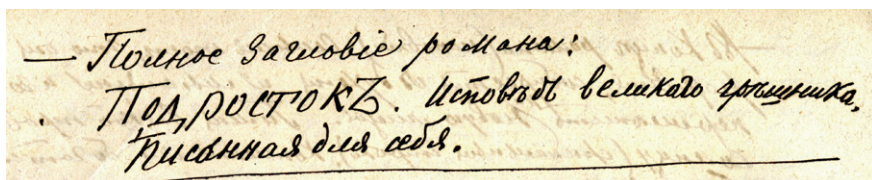 — Полное Заглавіе романа:
Подростокъ. Исповѣдь великаго грѣшника,
писанная для себя.